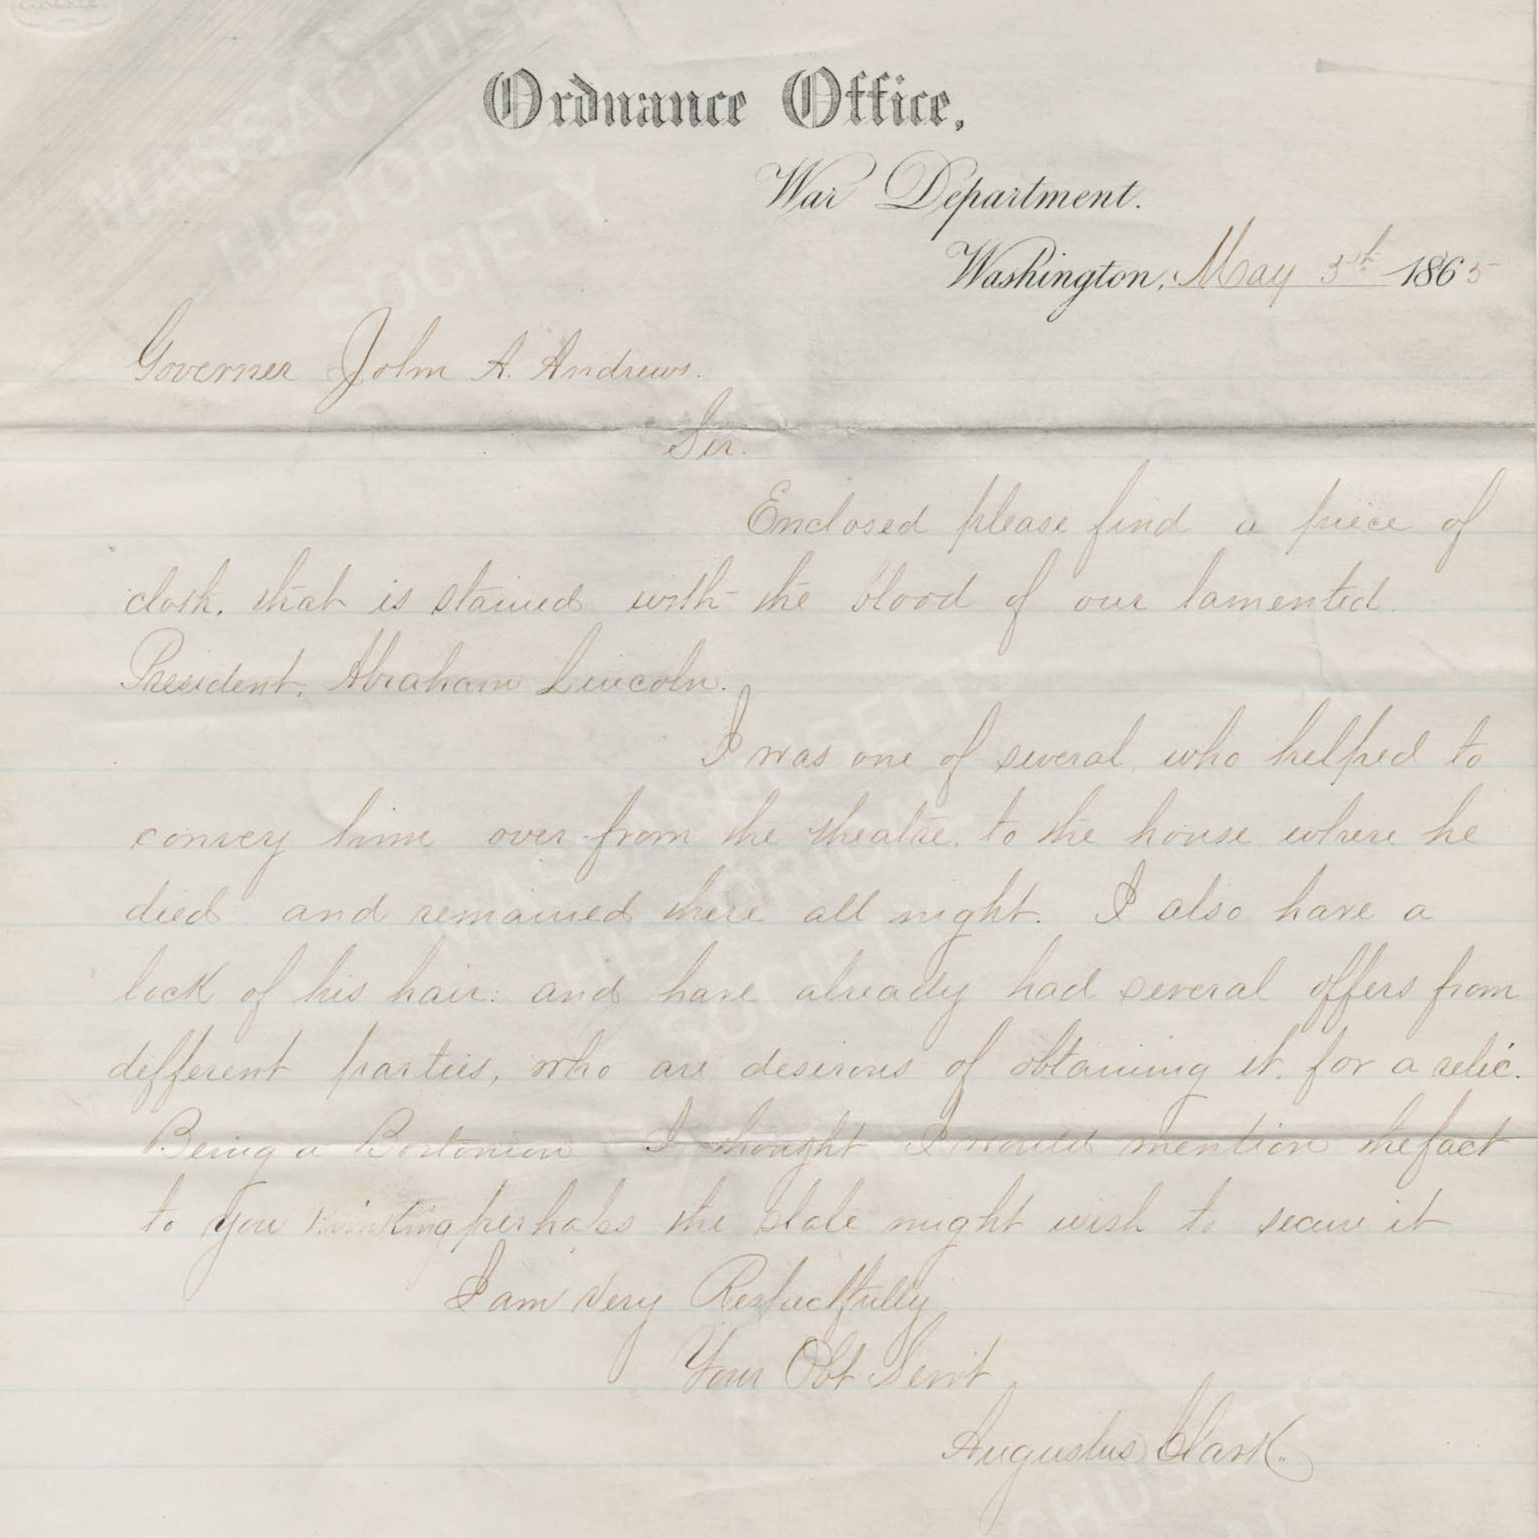 Ordnance Office,
War Department.
Washington, May 5th 1865
Governer John A. Andrews.
Sir.
Enclosed please find a piece of
cloth, that is stained with the blood of our lamented.
President, Abraham Lincoln.
I was one of several, who helped to
convey him over from the theatre, to the house where he
died: and remained there all night. I also have a
lock of his hair: and have already had several offers from
different parties, who are desirous of obtaining it, for a relic.
Being a Bostonion I thought I would mention the fact
to you thinking perhaps the state might wish to secure it
I am Very Respectfully
Your Obt Servt
Augustus Clark.
MASSACHUSETTS
HISTORICAL
SOCIETY
MASSACHUSETTS
HISTORICAL
SOCIETY